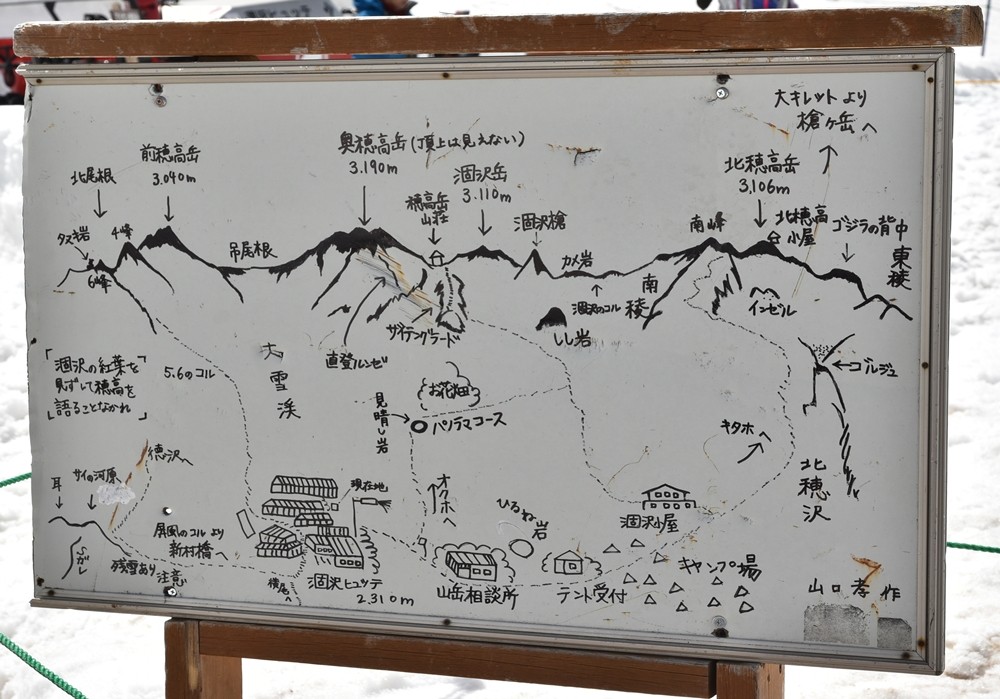 大キレットより
槍ヶ岳へ
奥穂高岳(頂上は見えない)
3.190m
前穂高岳
3.040m
北尾根
涸沢岳
3.110m
北穂高岳
3,106m
穂高岳
山荘
涸沢槍
南峰
北穂高
小屋
ゴジラの背中
東稜
タヌキ岩
4峰
6峰
吊尾根
カメ岩
涸沢のコル
南稜
インゼル
ザイテングラード
しし岩
直登ルンゼ
ゴルジュ
「涸沢の紅葉を
見ずして穂高を
語ることなかれ」
5.6のコル
大雪渓
お花畑
見晴し岩
パノラマコース
キタホへ
北穂沢
徳沢へ
サイの河原
耳
現在地
オクホへ
ひるね岩
涸沢小屋
屏風のコルより
新村橋へ
残雪あり注意
横尾へ
涸沢ヒュッテ
2.310m
山岳相談所
テント受付
キャンプ場
山口孝作